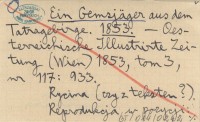 Ein Gemsjäger aus dem
Tatragebirge. 1853. — Oes-
terreichische Illustrirte Zei-
tung (Wien) 1853, tom 3,
nr 117: 933.
Rycina (czy z tekstem?).
Reprodukcja w pozycji: